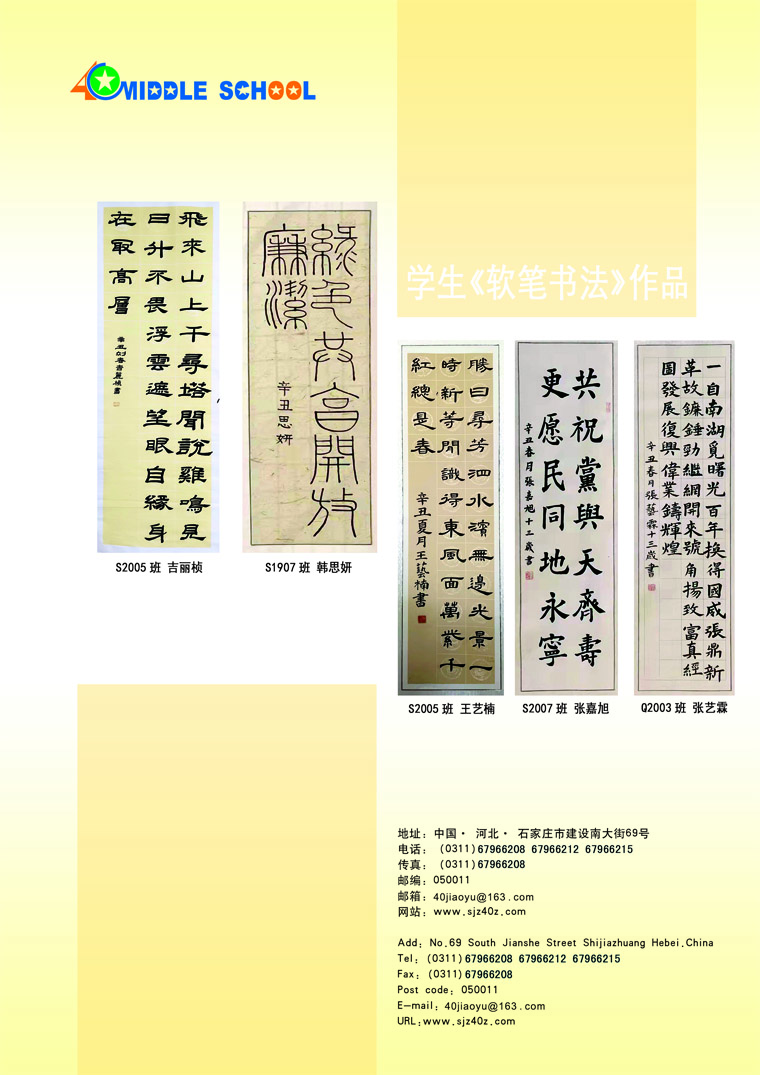 40 MIDDLE SCHOOL
学生《软笔书法》作品
飛來山上千尋塔聞說雞鳴見
日升不畏浮雲遮望眼自緣身
在取高層
綠色共享開放
廉潔
辛丑思妍
勝日尋芳泗水濱無邊光景一
時新等閒識得東風面萬紫千
紅總是春
辛丑夏月王藝楠書
共祝黨與天齊壽
更愿民同地永寧
辛丑春月張嘉旭十三歲書
一自南湖覓曙光百年換得國威張鼎新
革故鐮錘勁繼網開來號角揚致富真經
圖發展復興偉業鑄輝煌
辛丑春月張藝霖十三歲書
S2005班 吉丽桢
S1907班 韩思妍
S2005班 王艺楠
S2007班 张嘉旭
Q2003班 张艺霖
地址：中国· 河北· 石家庄市建设南大街69号
电话：(0311)67966208 67966212 67966215
传真：(0311)67966208
邮编：050011
邮箱：40jiaoyu@163.com
网站：www.sjz40z.com
Add: No.69 South Jianshe Street Shijiazhuang Hebei.China
Tel: (0311)67966208 67966212 67966215
Fax: (0311)67966208
Post code: 050011
E-mail: 40jiaoyu@163.com
URL:www.sjz40z.com